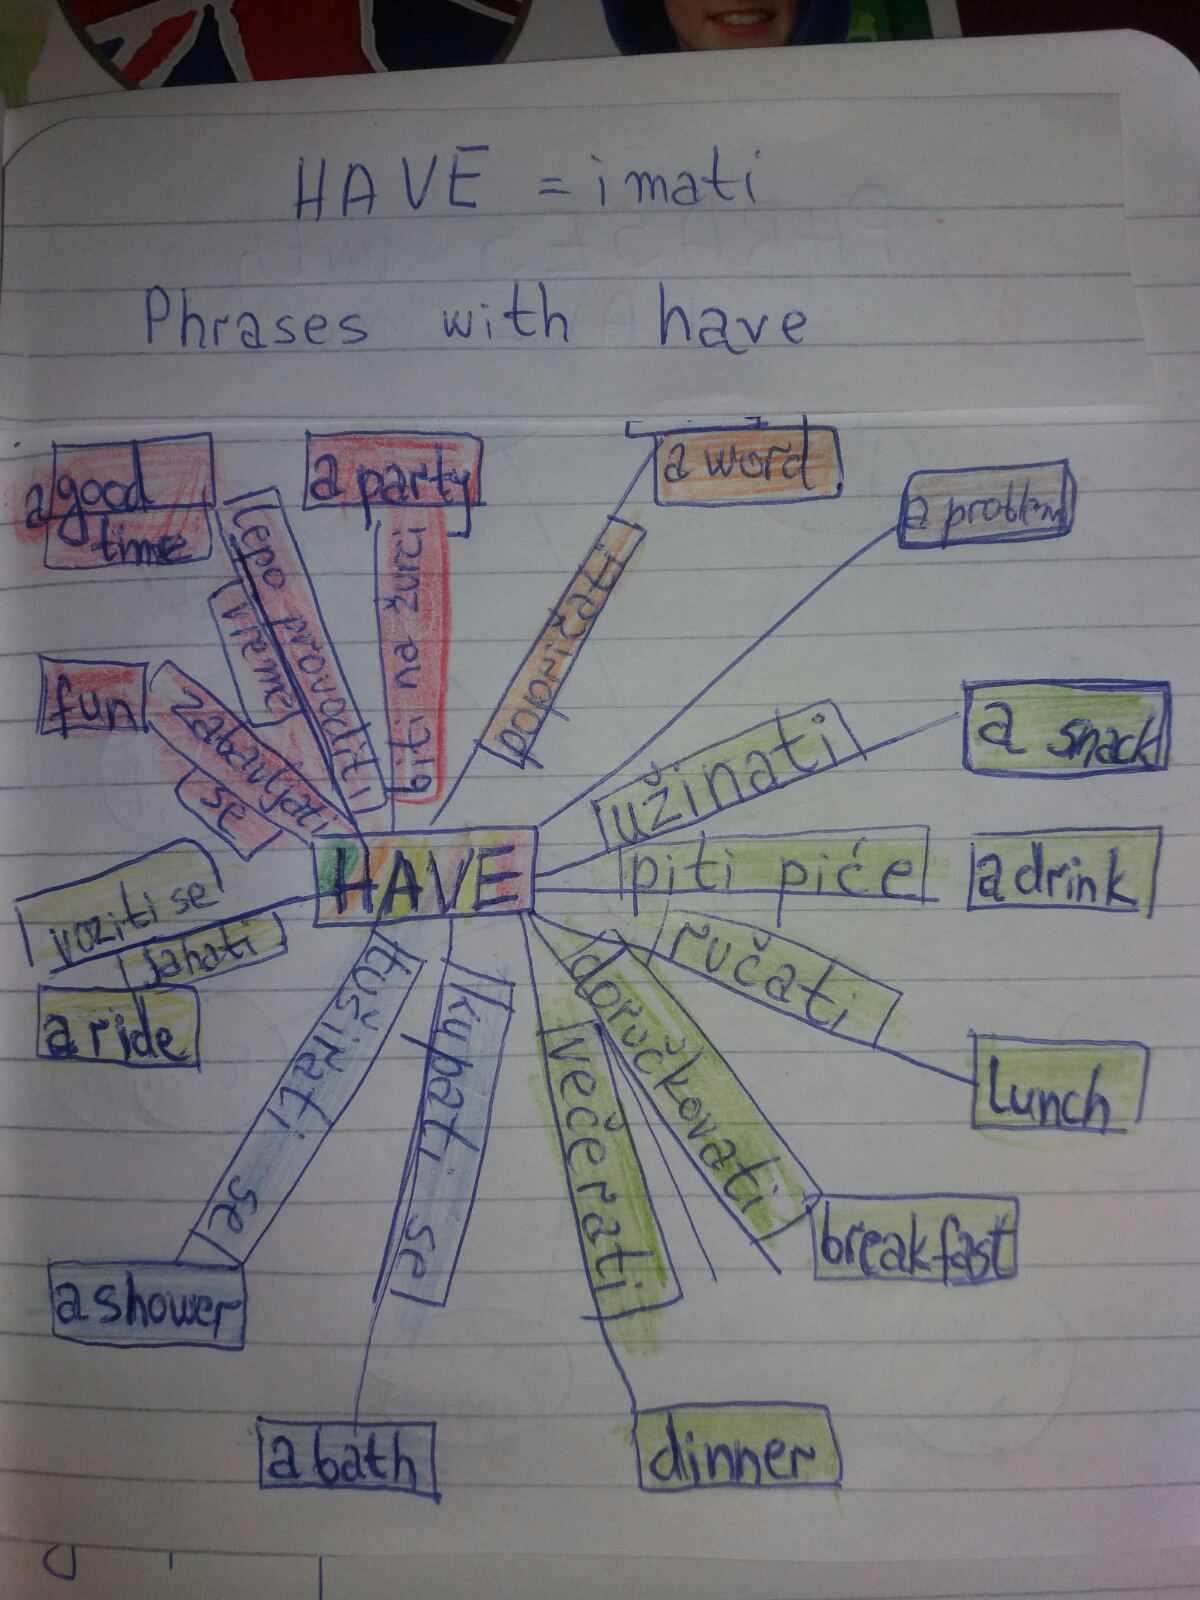 HAVE = imati
Phrases with have
a good
time
lepo provoditi
vreme
a party
biti na žurci
a word
popričati
a problem
fun
zabavljati
se
užinati
a snack
HAVE
piti piće
a drink
voziti se
jahati
a ride
ručati
lunch
doručkovati
breakfast
večerati
dinner
kupati se
a bath
tuširati se
a shower